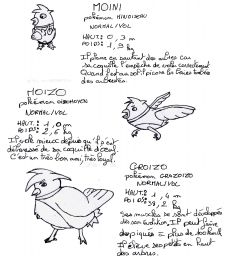 MOINI
pokémon MINIOIZEAU
NORMAL/VOL
HAUT.: 0,3 m
POIDS: 1,9 kg
Il plane en sautant des arbres car
sa coquille l'empêche de voler
Quand il est au sol, il picore les baies
des arbustes.
MOIZO
pokémon
NORMAL/VOL
HAUT.: 1,0 m
POIDS: 2,6 kg
Il vole mieux depuis qu'il s'est
débarrassé de sa coquille d'oeuf.
C'est un très bon ami, très loyal.
GROIZO
pokémon GRAZOIZO
NORMAL/VOL
1, m
39,2 kg
Ses muscles se sont développés
dès son évolution. Il peut faire
des piqués à plus de
Il élève ses petits en haut
des arbres.